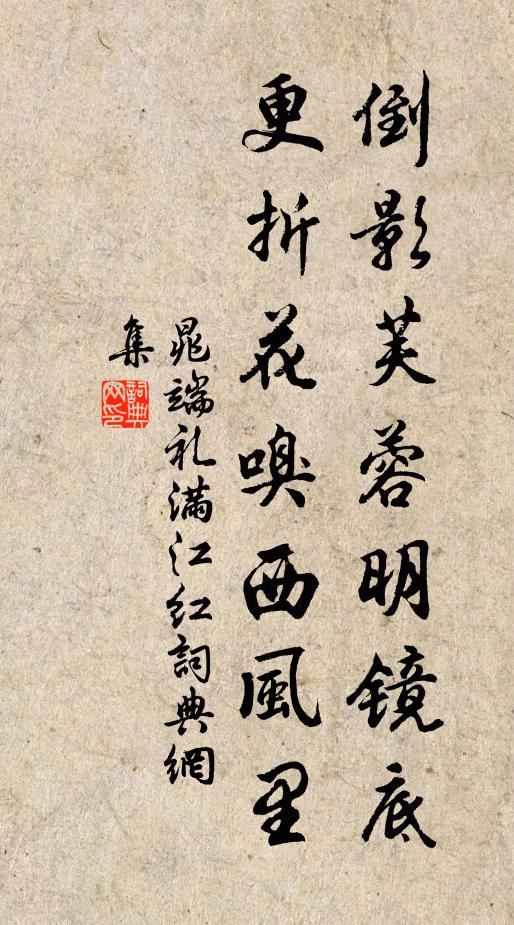 倒影芙蓉明镜底
更折花嗅西風里
晁端礼满江红詞典網
集
詞典
网印